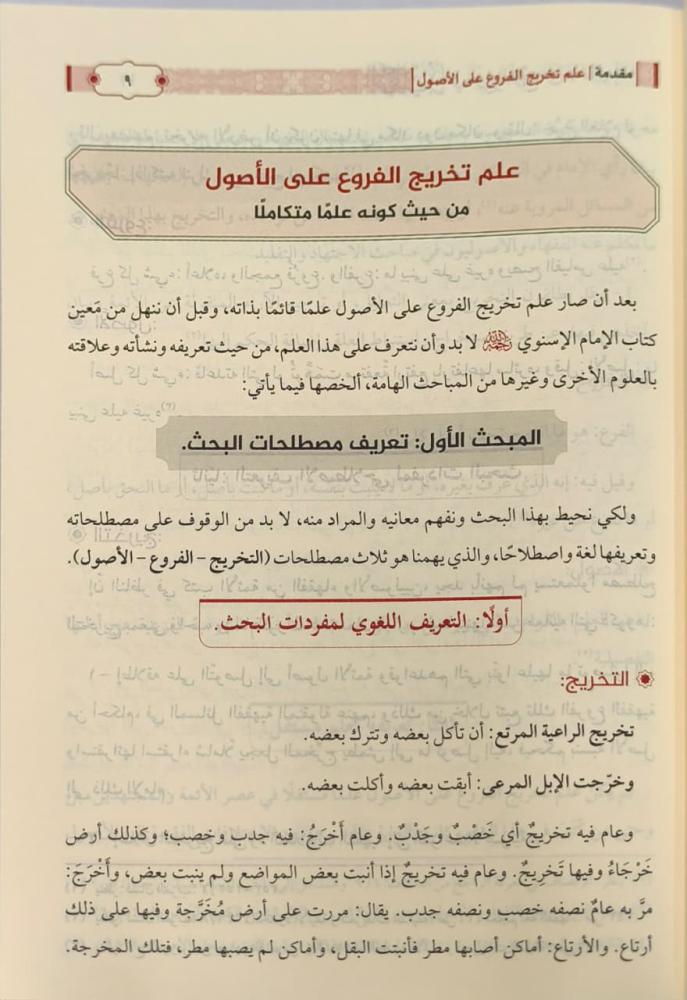 مقدمة | علم تخريج الفروع على الأصول
٩
علم تخريج الفروع على الأصول
من حيث كونه علمًا متكاملًا
بعد أن صار علم تخريج الفروع على الأصول علمًا قائمًا بذاته، وقبل أن ننهل من مَعين
كتاب الإمام الإسنوي رحمه الله لا بد وأن نتعرف على هذا العلم، من حيث تعريفه ونشأته وعلاقته
بالعلوم الأخرى وغيرها من المباحث الهامة، ألخصها فيما يأتي:
المبحث الأول: تعريف مصطلحات البحث.
ولكي نحيط بهذا البحث ونفهم معانيه والمراد منه، لا بد من الوقوف على مصطلحاته
وتعريفها لغة واصطلاحًا، والذي يهمنا هو ثلاث مصطلحات (التخريج - الفروع - الأصول).
أولًا: التعريف اللغوي لمفردات البحث.
التخريج:
تخريج الراعية المرتع: أن تأكل بعضه وتترك بعضه.
وخرّجت الإبل المرعى: أبقت بعضه وأكلت بعضه.
وعام فيه تخريجٌ أي خَصْبٌ وجَدْبٌ. وعام أَخْرَجُ: فيه جدب وخصب؛ وكذلك أرض
خَرْجَاءُ وفيها تَخرِيجٌ. وعام فيه تخريجٌ إذا أنبت بعض المواضع ولم ينبت بعض، وأَخْرَجَ:
مرَّ به عامٌ نصفه خصب ونصفه جدب. يقال: مررت على أرض مُخَرَّجة وفيها على ذلك
أرتاع. والأرتاع: أماكن أصابها مطر فأنبتت البقل، وأماكن لم يصبها مطر، فتلك المخرجة.